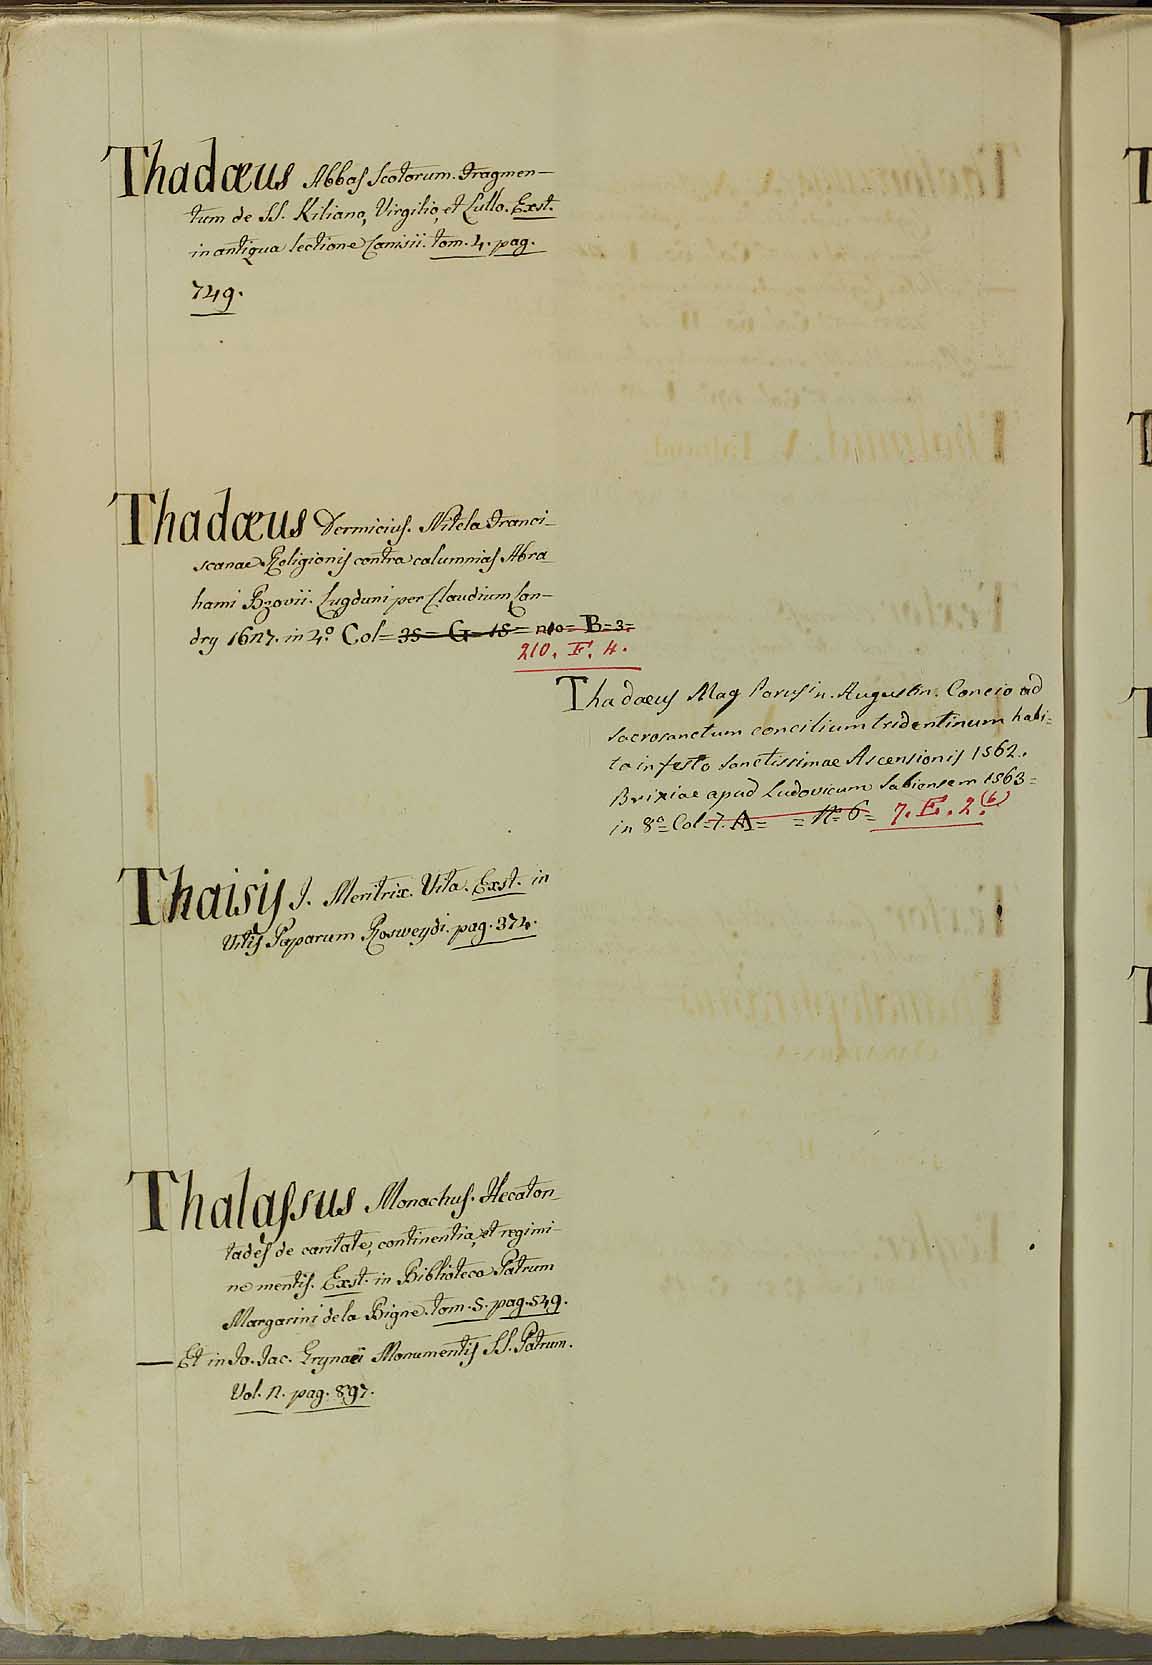 Thadæus Abbas Scotorum. Fragmen-
tum de SS. Kiliano, Virgilio, et Lullo. Exst.
in antiqua lectione Canisii. tom. 4. pag.
749.
Thadæus Dermicius. Nitela Franci-
scanae Religionis contra calumnias Abra
hami Bzovii. Lugduni per Claudium Lan-
dry 1627. in 4.º Col= 35= G= 15= nº= B=3=
210. F. 4.
Thadaeus Mag Perusin. Augustin. Concio ad
sacrosanctum concilium tridentinum habi=
ta in festo sanctissimae Ascensionis 1562.
Brixiae apud Ludovicum Sabiensem 1563=
in 8º= Col=7. A= =Nº= 6= 7. E. 2.(6)
Thaisis S. Meritrix. Vita. Exst. in
Vitis Paparum Rosweydi. pag. 374.
Thalassus Monachus. Hecaton-
tades de caritate, continentia, et regimi-
ne mentis. Exst. in Biblioteca Patrum
Margarini dela Bigne. tom. 5. pag. 549.
— Et in Jo. Jac. Grynaei Monumentis SS. Patrum.
Vol. 2. pag. 897.